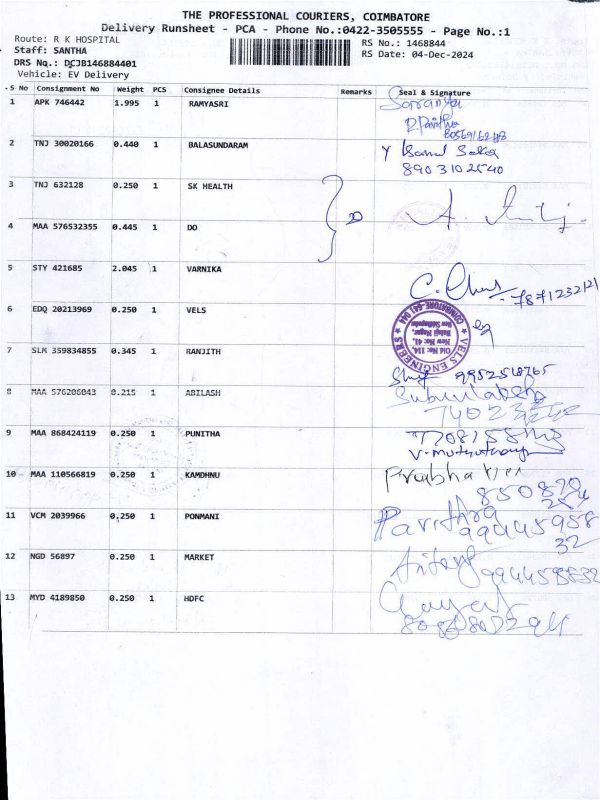 THE PROFESSIONAL COURIERS, COIMBATORE
Delivery Runsheet - PCA - Phone No.:0422-3505555 - Page No.:1
Route: R K HOSPITAL
RS No.: 1468844
Staff: SANTHA
RS Date: 04-Dec-2024
DRS No.: DCJB146884401
Vehicle: EV Delivery
S No Consignment No Weight PCS Consignee Details Remarks Seal & Signature
1 APK 746442 1.995 1 RAMYASRI
2 TNJ 30020166 0.440 1 BALASUNDARAM
8903102540
3 TNJ 632128 0.250 1 SK HEALTH
4 MAA 576532355 0.445 1 DO
5 STY 421685 2.045 1 VARNIKA
7871232121
6 EDQ 20213969 0.250 1 VELS
VELS ENGINEERS
Old No: 114,
New No: 43,
Balaji Nagar,
COIMBATORE-641 044
7 SLM 359834855 0.345 1 RANJITH
9952518765
8 MAA 576206043 0.215 1 ABILASH
9 MAA 868424119 0.250 1 PUNITHA
10 MAA 110566819 0.250 1 KAMDHNU
11 VCM 2039966 0.250 1 PONMANI
Pavithra
99445958
32
12 NGD 56897 0.250 1 MARKET
13 MYD 4189850 0.250 1 HDFC